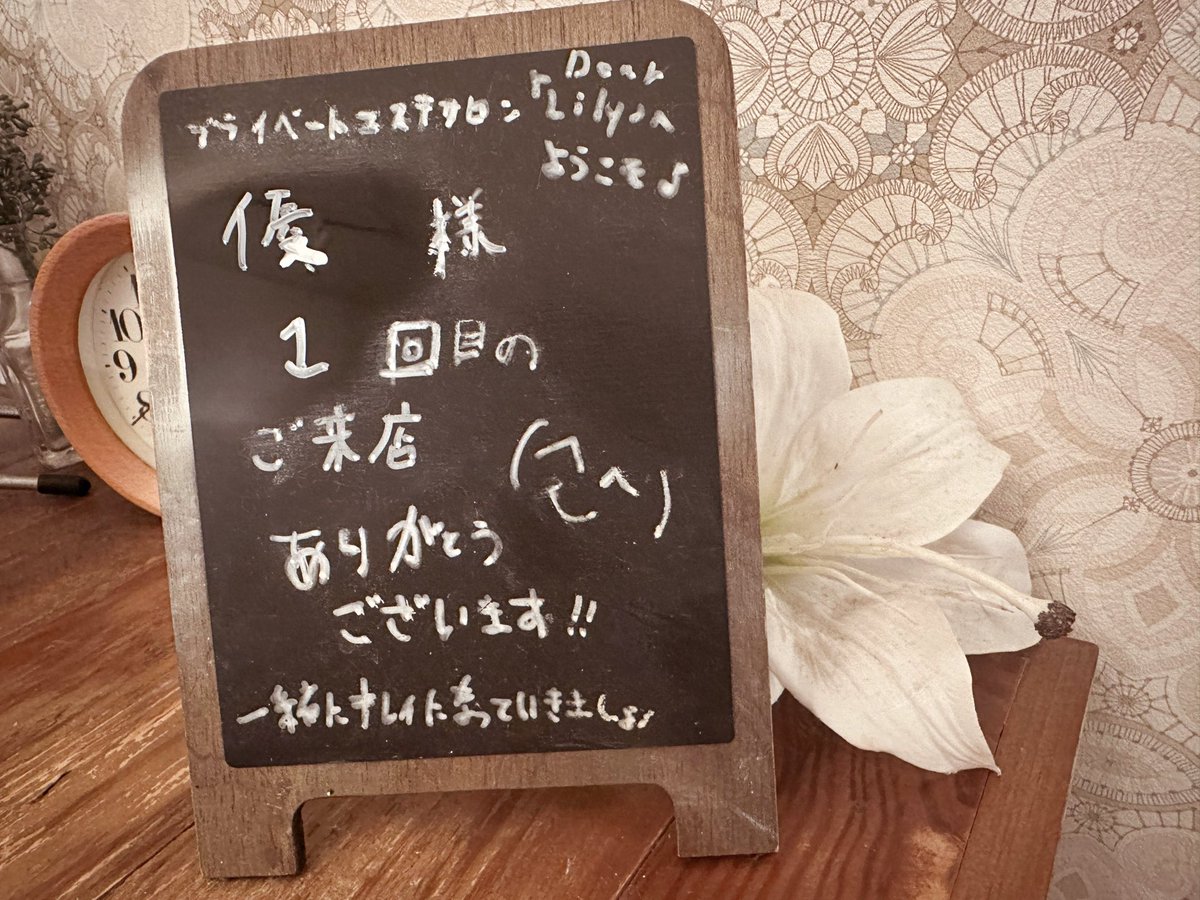 プライベートエステサロン
Dear
Lily♪へ
ようこそ♪
優 様
1 回目の
ご来店
ありがとう
ございます!!
一緒にキレイになっていきましょ♪
10
9
8